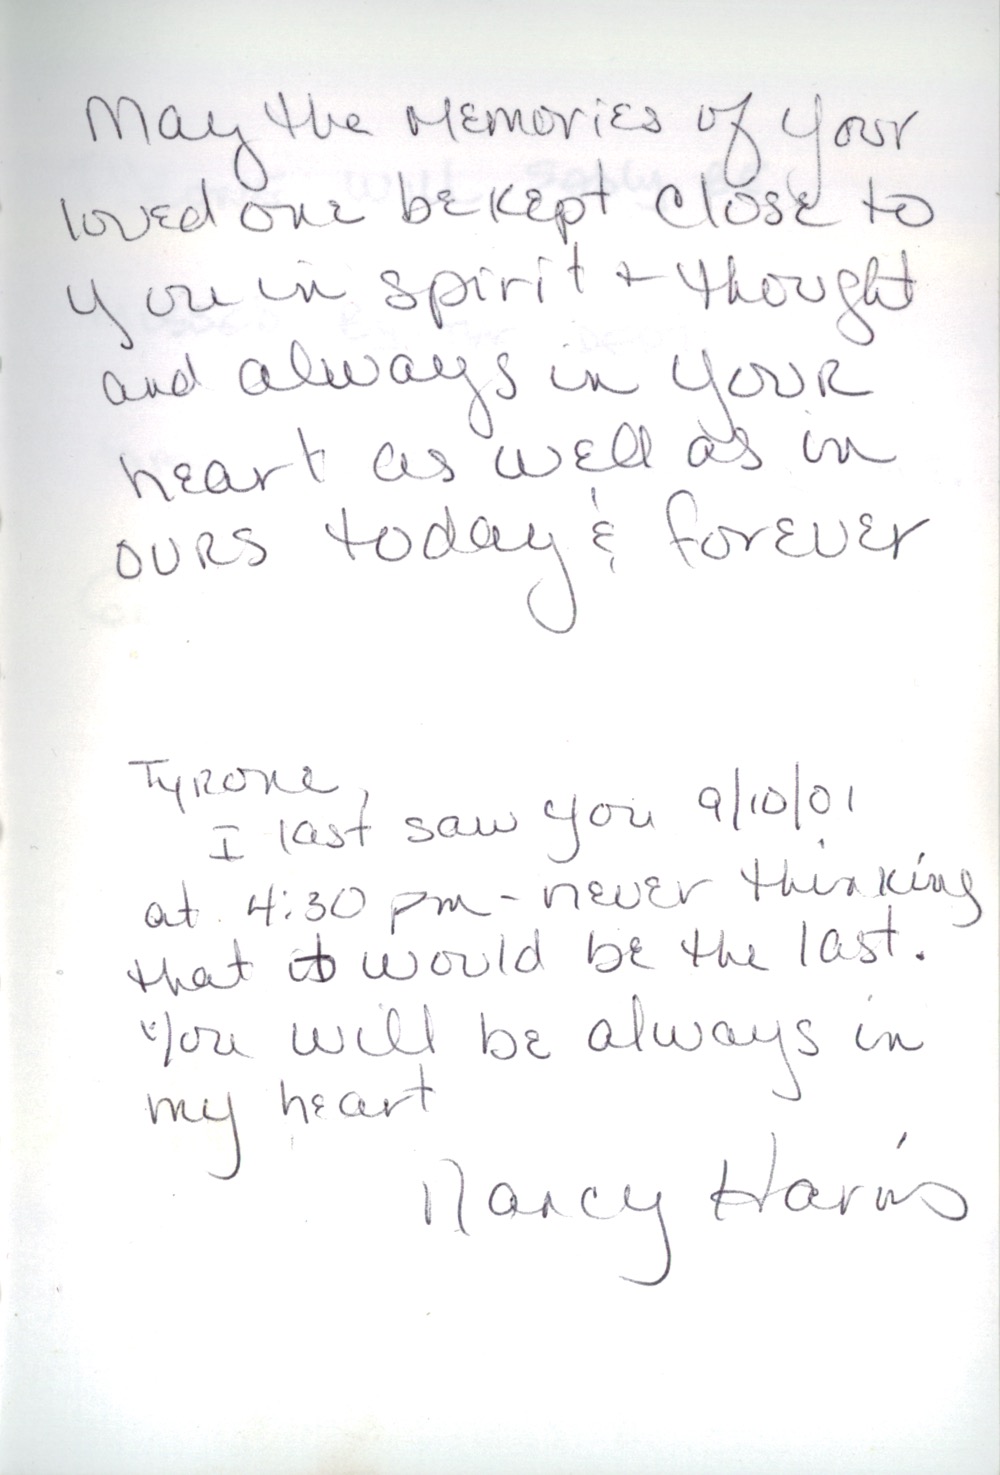 May the Memories of your
loved one be kept close to
you in spirit + thought
and always in your
heart as well as in
OURS today & forever
Tyrone,
I last saw you 9/10/01
at 4:30 pm - never thinking
that it would be the last.
You will be always in
my heart
Nancy Harris